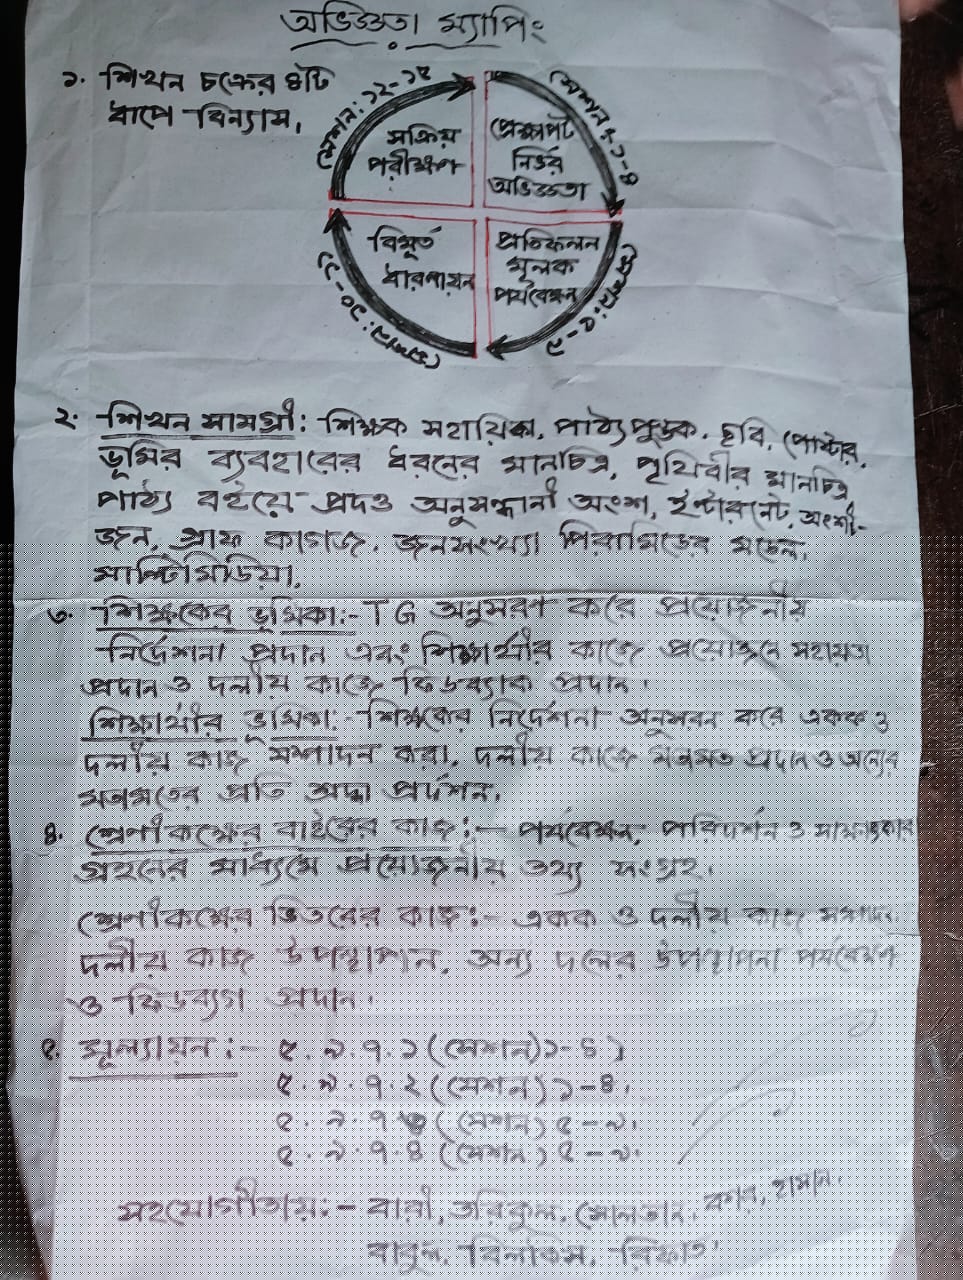 অভিজ্ঞতা ম্যাপিং
১. শিখন চক্রের ৪টি
ধাপে বিন্যাস,
সেশন: ১২-১৫
সক্রিয়
পরীক্ষণ
প্রেক্ষাপট
নির্ভর
অভিজ্ঞতা
সেশন: ১-৪
বিমূর্ত
ধারণায়ন
সেশন: ১০-১১
প্রতিফলন
মূলক
পর্যবেক্ষন
সেশন: ৫-৯
২. শিখন সামগ্রী: শিক্ষক সহায়িকা, পাঠ্যপুস্তক, ছবি, পোষ্টার,
ভূমির ব্যবহারের ধরনের মানচিত্র, পৃথিবীর মানচিত্র,
পাঠ্য বইয়ে প্রদও অনুসন্ধানী অংশ, ইন্টারনেট, অংশী-
জন, গ্রাফ কাগজ, জনসংখ্যা পিরামিডের মডেল,
মাল্টিমিডিয়া,
৩. শিক্ষকের ভূমিকা:- TG অনুসরণ করে প্রয়োজনীয়
নির্দেশনা প্রদান এবং শিক্ষার্থীর কাজে প্রয়োজনে সহায়তা
প্রদান ও দলীয় কাজে ফিডব্যাক প্রদান।
শিক্ষার্থীর ভূমিকা:- শিক্ষকের নির্দেশনা অনুসরন করে একক ও
দলীয় কাজ সম্পাদন করা, দলীয় কাজে মতামত প্রদান ও অন্যের
মতামতের প্রতি শ্রদ্ধা প্রর্দশন,
৪. শ্রেণীকক্ষের বাইরের কাজ:- পর্যবেক্ষন, পরিদর্শন ও সাক্ষাৎকার
গ্রহনের মাধ্যমে প্রয়োজনীয় তথ্য সংগ্রহ।
শ্রেণীকক্ষের ভিতরের কাজ:- একক ও দলীয় কাজ সম্পাদন,
দলীয় কাজ উপস্থাপন, অন্য দলের উপস্থাপনা পর্যবেক্ষণ
ও ফিডব্যাগ প্রদান।
৫. মূল্যায়ন:- ৫.৯.৭.১ (সেশন) ১-৪)
৫.৯.৭.২ (সেশন) ১-৪,
৫.৯.৭.৩ (সেশন) ৫-৯,
৫.৯.৭.৪ (সেশন) ৫-৯,
সহযোগীতায়:- বারী, তরিকুল, সোলতান, হাসান,
বাবুল, বিলকিস, রিফাত,